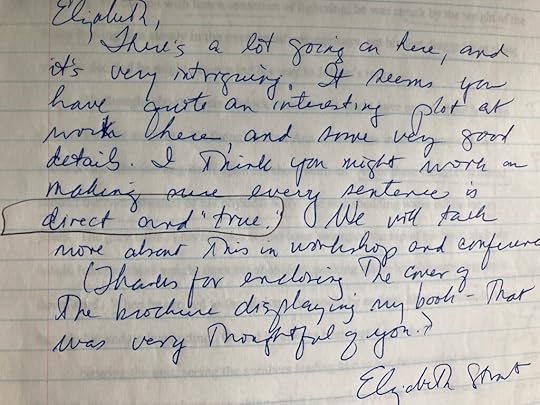 Elizabeth,
There's a lot going on here, and
it's very intriguing. It seems you
have quite an interesting plot at
work here, and some very good
details. I think you might work on
making sure every sentence is
direct and "true." We will talk
more about this in workshop and conference
(Thanks for enclosing the cover of
the brochure displaying my book - That
was very thoughtful of you.)
Elizabeth Strout